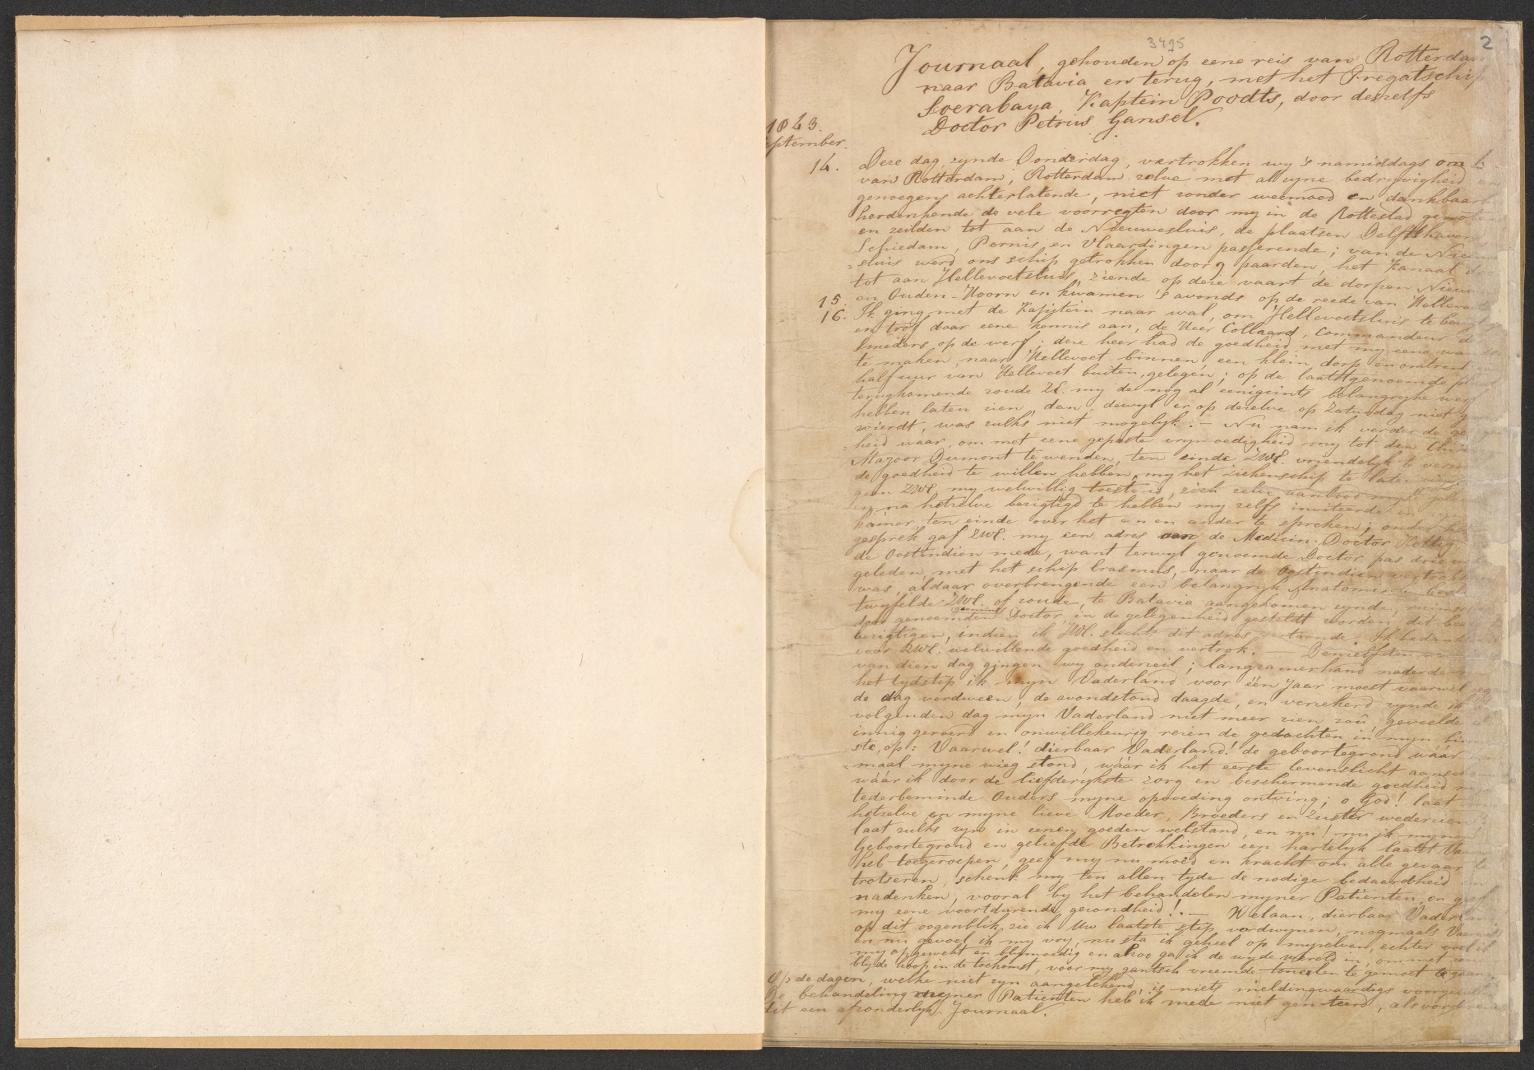 3495
2
Journaal, gehouden op eene reis van Rotterdam
naar Batavia en terug, met het Fregatschip
Soerabaya, Kaptein Poodts, door deszelfs
Doctor Petrus Gansel.
1843.
September.
14. Deze dag, zynde Donderdag, vertrokken wy 's namiddags om 6
van Rotterdam, Rotterdam zelve met al zyne bedryvigheid en
genoegens achterlatende, niet zonder weemoed en dankbaar
herdenkende de vele voorregten door my in de Rottestad genoten
en zeilden tot aan de Nieuwesluis, de plaatsen Delfthaven
Schiedam, Pernis en Vlaardingen passerende; van de Nieuwe
sluis werd ons schip getrokken door 9 paarden, het Kanaal door
tot aan Hellevoetsluis, ziende op deze vaart de dorpen Nieuw
15. en Ouden-Hoorn en kwamen 's avonds op de reede van Hellevoet
16. Ik ging met de Kapitein naar wal, om Hellevoetsluis te
en trof daar eene kennis aan, de Heer Collaard, Commandeur der
smeders op de werf; deze heer had de goedheid met my eene
te maken, naar Hellevoet binnen, een klein dorp omtrent
half uur van Hellevoet buiten, gelegen; op de laatstgenoemde
terugkomende zoude ZE. my de nog al eenigzints belangryke werf
hebben laten zien, dan, dewyl er op dezelve op Zaturdag niet
wierdt, was zulks niet mogelyk. — Nu nam ik verder de
heid waar, om met eene gepaste vrymoedigheid my tot den
Majoor Dumont te wenden, ten einde ZWE. vriendelyk te
de goedheid te willen hebben, my het ziekenschip te laten
geen ZWE. my welwillig toestond, zich zelve aanbood
na hetzelve bezigtigd te hebben my zelfs inviteerde
kamer ten einde over het een en ander te spreken; onder het
gesprek gaf ZWE. my een adres aan de Medicin. Doctor
de Oostindien mede, want terwyl genoemde Doctor pas drie
geleden, met het schip Erasmus, naar de Oostindien vertrokken
was, aldaar overbrengende een belangryk Anatomisch
twyfelde ZWE. of zoude, te Batavia aangekomen zynde,
door genoemden Doctor, in de gelegenheid gesteldt worden, dit
bezigtigen, indien ik ZWE. slechts dit adres vertoonde. Ik bedankte
voor ZWE. welwillende goedheid en vertrok. —
van dien dag gingen wy onderzeil; langzamerhand naderde
het tydstip ik myn Vaderland voor één Jaar moest vaarwel
de dag verdween, de avondstond daagde, en verzekerd zynde ik
volgenden dag myn Vaderland niet meer zien zoû, gevoelde
innig geroerd en onwillekeurig rezen de gedachten in myn
ste, op: Vaarwel! dierbaar Vaderland! de geboortegrond wáár
maal myne wieg stond, wáár ik het eerste levenslicht
wáár ik door de liefderykste zorg en beschermende goedheid
tederbeminde Ouders myne opvoeding ontving; o God! laat
hetzelve en myne lieve Moeder, Broeders en Zuster wederzien
laat zulks zyn in eenen goeden welstand, en nu! nu ik myne
Geboortegrond en geliefde Betrekkingen een hartelyk laatst
heb toegeroepen, geef my nu moed en kracht om alle gevaar te
trotseren, schenk my ten allen tyde de nodige bedaardheid
nadenken, vooral by het behandelen myner Patienten, en geef
my eene voortdurende gezondheid! — Welaan, dierbaar Vaderland
op dit oogenblik zie ik Uw laatste stip verdwynen, nogmaals Vaarwel
en nu gevoel ik my vry, nu sta ik geheel op myzelven, echter
my opgewekt en blymoedig en alzoo ga ik de wyde wereld in, om met
blyde hoop in de toekomst, voor my gantsch vreemde toneelen te gemoet te gaan.
Op de dagen, welke niet zyn aangetekend, is niets meldingwaardigs voorgevallen
De behandeling myner Patienten heb ik mede niet genoteerd, als
dit een afzonderlyk Journaal.